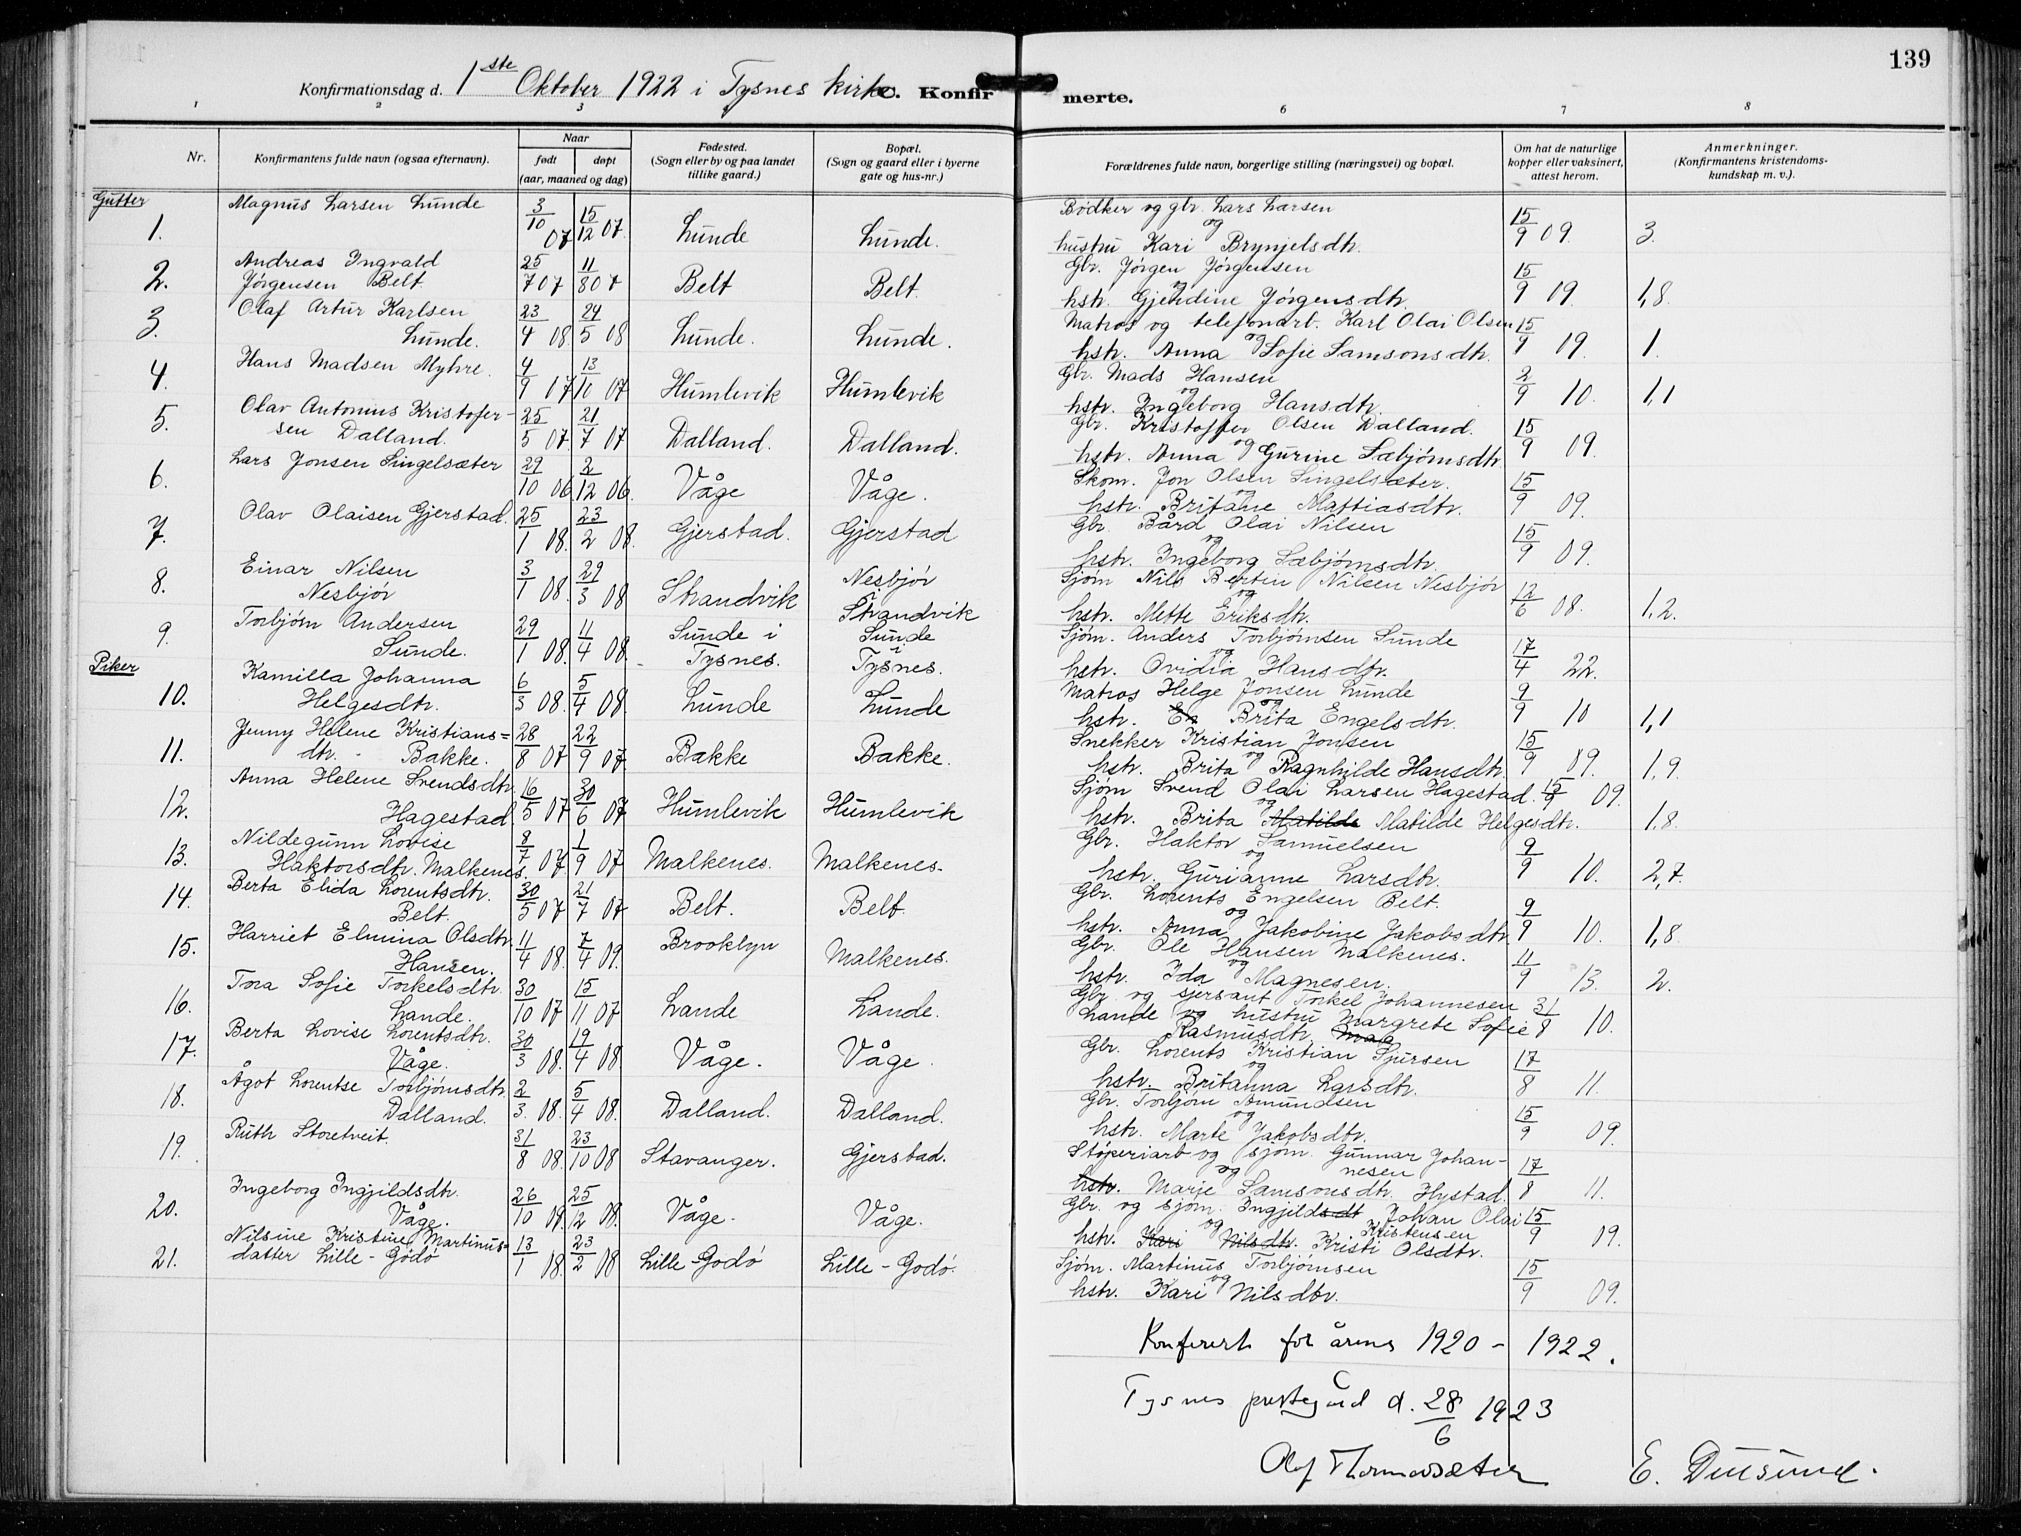 139
Konfirmationsdag d. 1ste Oktober 1922 i Tysnes kirke C. Konfir merte.
1 2 3 6 7 8
Nr. Konfirmantens fulde navn (ogsaa efternavn). Naar født døpt (aar, maaned og dag) Fødested. (Sogn eller by og paa landet tillike gaard.) Bopæl. (Sogn og gaard eller i byerne gate og hus-nr.) Forældrenes fulde navn, borgerlige stilling (næringsvei) og bopæl. Om hat de naturlige kopper eller vaksinert, attest herom. Anmerkninger. (Konfirmantens kristendoms-kundskap m. v.).
Gutter
1. Magnus Larsen Lunde 3/10 07 15/12 07. Lunde Lunde. Bødker og gbr. Lars Larsen
og
hustru Kari Brynjelsdtr. 15/9 09. 3.
2. Andreas Ingvald
Jørgensen Belt 25/7 07 11/8 07 Belt Belt. Gbr. Jørgen Jørgensen
og
hstr. Gjendine Jørgensdtr. 15/9 09. 1,8.
3. Olaf Artur Karlsen
Lunde. 23/4 08 24/5 08 Lunde. Lunde. Matros og telefonarb. Karl Olai Olsen
og
hstr. Anna Sofie Samsonsdtr. 15/9 09. 1.
4. Hans Madsen Myhre. 4/9 07 13/10 07 Humlevik Humlevik Gbr. Mads Hansen
og
hstr. Ingeborg Hansdtr. 2/9 10. 1,1
5. Olav Antonius Kristofer-
sen Dalland. 25/5 07 21/7 07 Dalland. Dalland. Gbr. Kristoffer Olsen Dalland.
og
hstr. Anna Gurine Sæbjørnsdtr. 15/9 09.
6. Lars Jonsen Singelsæter 29/10 06 2/12 06. Våge Våge. Skom. Jon Olsen Singelsæter.
og
hstr. Britane Mattiasdtr. 15/9 09.
7. Olav Olaisen Gjerstad. 25/1 08. 23/2 08. Gjerstad. Gjerstad Gbr. Bård Olai Nilsen
og
hstr. Ingeborg Sæbjørnsdtr. 15/9 09.
8. Einar Nilsen
Nesbjør 3/1 08. 29/3 08 Strandvik Nesbjør
i
Strandvik Sjøm Nils Bertin Nilsen Nesbjör
og
hstr. Mette Eriksdtr. 12/6 08. 1,2.
9. Torbjørn Andersen
Sunde. 29/1 08. 11/4 08. Sunde i
Tysnes. Sunde
i
Tysnes. Sjøm. Anders Torbjørnsen Sunde
og
hstr. Ovidia Hansdtr. 17/4 22.
Piker
10. Kamilla Johanna
Helgesdtr. 6/3 08. 5/4 08. Lunde Lunde Matros Helge Jonsen Lunde
og
hstr. En Brita Engelsdtr. 9/9 10 1,1
11. Jenny Helene Kristians=
dtr. Bakke. 28/8 07 22/9 07. Bakke Bakke. Snekker Kristian Jonsen
og
hstr. Brita Ragnhilde Hansdtr. 15/9 09. 1,9.
12. Anna Helene Svendsdtr.
Hagestad. 16/5 07 30/6 07 Humlevik Humlevik Sjøm Svend Olai Larsen Hagestad.
og
hstr. Brita Matilde Matilde Helgesdtr. 15/9 09. 1,8.
13. Nildegunn Lovise
Haktorsdtr. Malkenes. 8/7 07 1/9 07 Malkenes. Malkenes. Gbr. Haktor Samuelsen
og
hstr. Gurianne Larsdtr. 9/9 10. 2,7.
14. Berta Elida Lorentsdtr.
Belt. 30/5 07 21/7 07 Belt. Belt Gbr. Lorents Engelsen Belt.
og
hstr. Anna Jakobine Jakobsdtr. 9/9 10. 1,8.
15. Harriet Elmina Olsdtr.
Hansen. 11/4 08. 7/4 09. Brooklyn Malkenes. Gbr. Ole Hansen Malkenes.
og
hstr. Ida Magnesen. 11/9 13. 2.
16. Tora Sofie Torkelsdtr.
Lande. 30/10 07 15/11 07 Lande Lande. Gbr. og sjersant Torkel Johannesen
Lande og hustru Margrete Sofie
Rasmusdtr. Maa 31/8 10.
17. Berta Lovise Lorentsdtr.
Våge. 30/3 08. 19/4 08. Våge. Våge. Gbr. Lorents Kristian Sjursen
og
hstr. Britanna Larsdtr. 17/8 11.
18. Ågot Lorentse Torbjørnsdtr.
Dalland. 2/3. 08. 5/4 08. Dalland. Dalland. Gbr. Torbjørn Amundsen
og
hstr. Marte Jakobsdtr. 15/9 09.
19. Ruth Storetveit. 31/8 08. 23/10 08 Stavanger. Gjerstad. Støperiarb og sjøm. Gunnar Johan-
og nesen
hstr. Marie Samsonsdtr. Hystad. 17/8 11.
20. Ingeborg Ingjildsdtr.
Våge. 26/10 09. 25/12 08. Våge. Våge. Gbr. og sjøm. Ingjildsdt Johan Olai
og Kristensen
hstr. Kari Nilsdtr. Kristi Olsdtr. 15/9 09.
21. Nilsine Kristine Martinus=
datter Lille-Godö 13/1 08. 23/2 08 Lille-Godö Lille-Godö. Sjøm. Martinus Torbjørnsen
og
hstr. Kari Nilsdtr. 15/9 09.
Konferert for årene 1920-1922.
Tysnes prestegård d. 28/6 1923
Olaf E.